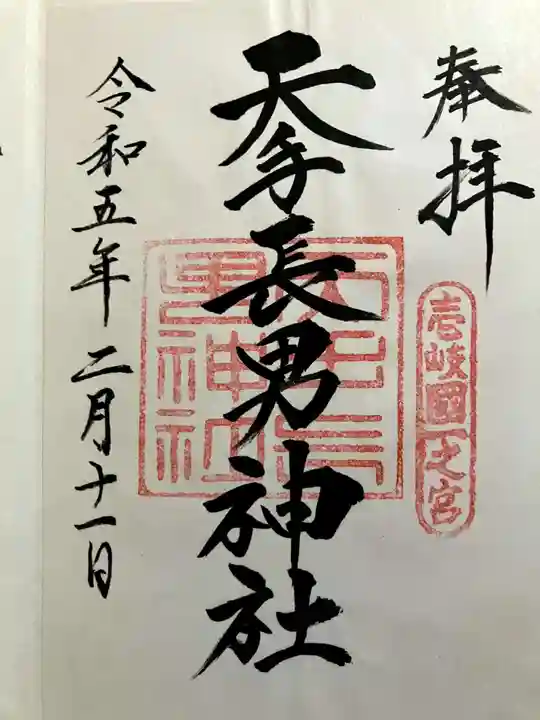 奉拝
壱岐國一之宮
天手長男神社
天手長男神社
令和五年二月十一日